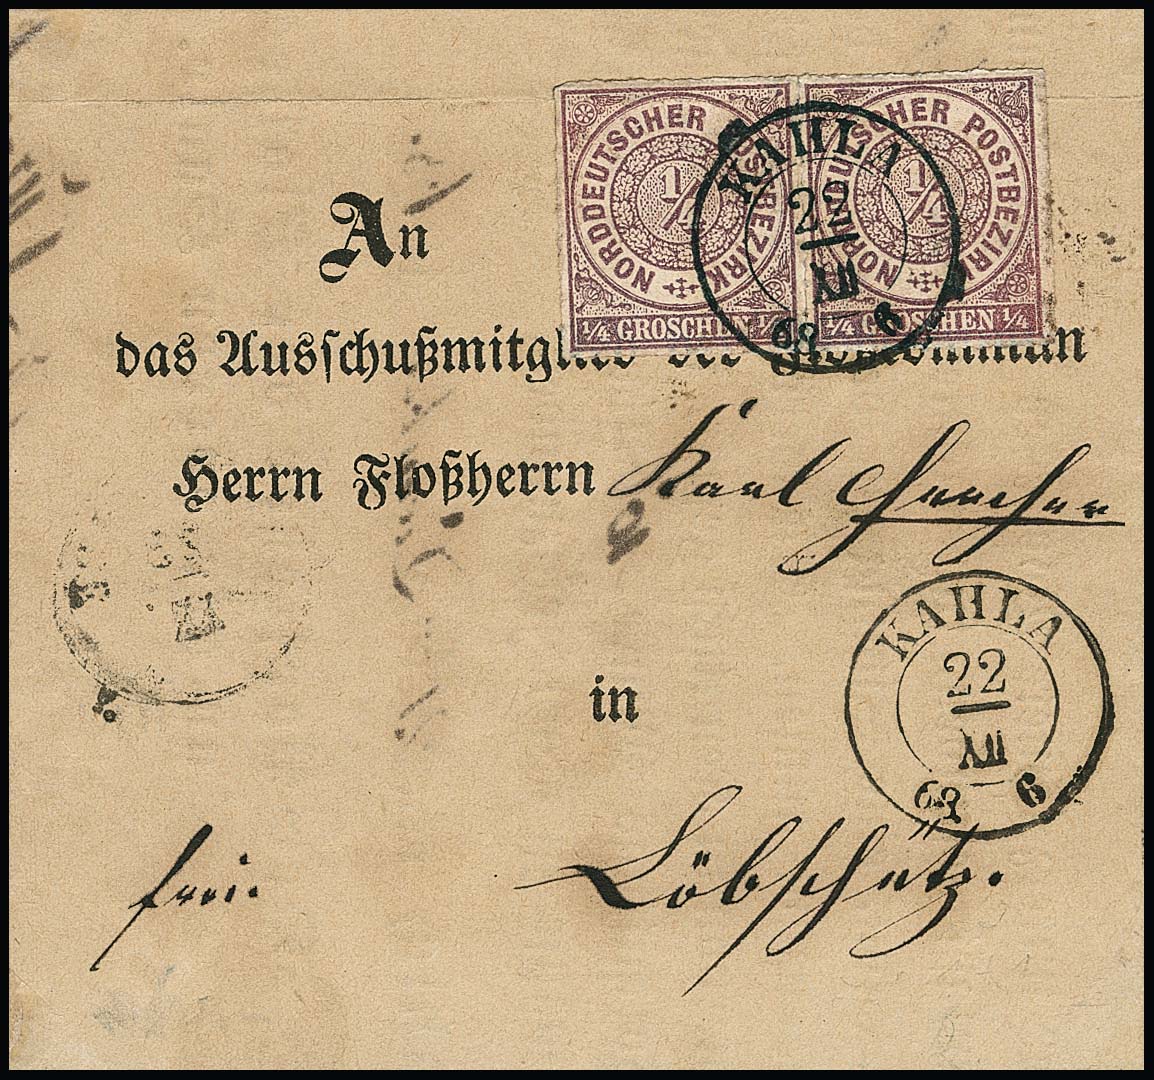 NORDDEUTSCHER POSTBEZIRK
1/4
1/4 GROSCHEN 1/4
NORDDEUTSCHER POSTBEZIRK
1/4
1/4 GROSCHEN 1/4
KAHLA
22
XII
68 6
An
das Ausschußmitglied der
Herrn Floßherrn Karl
in
KAHLA
22
XII
68 6
XII
Löbschütz.
frei.